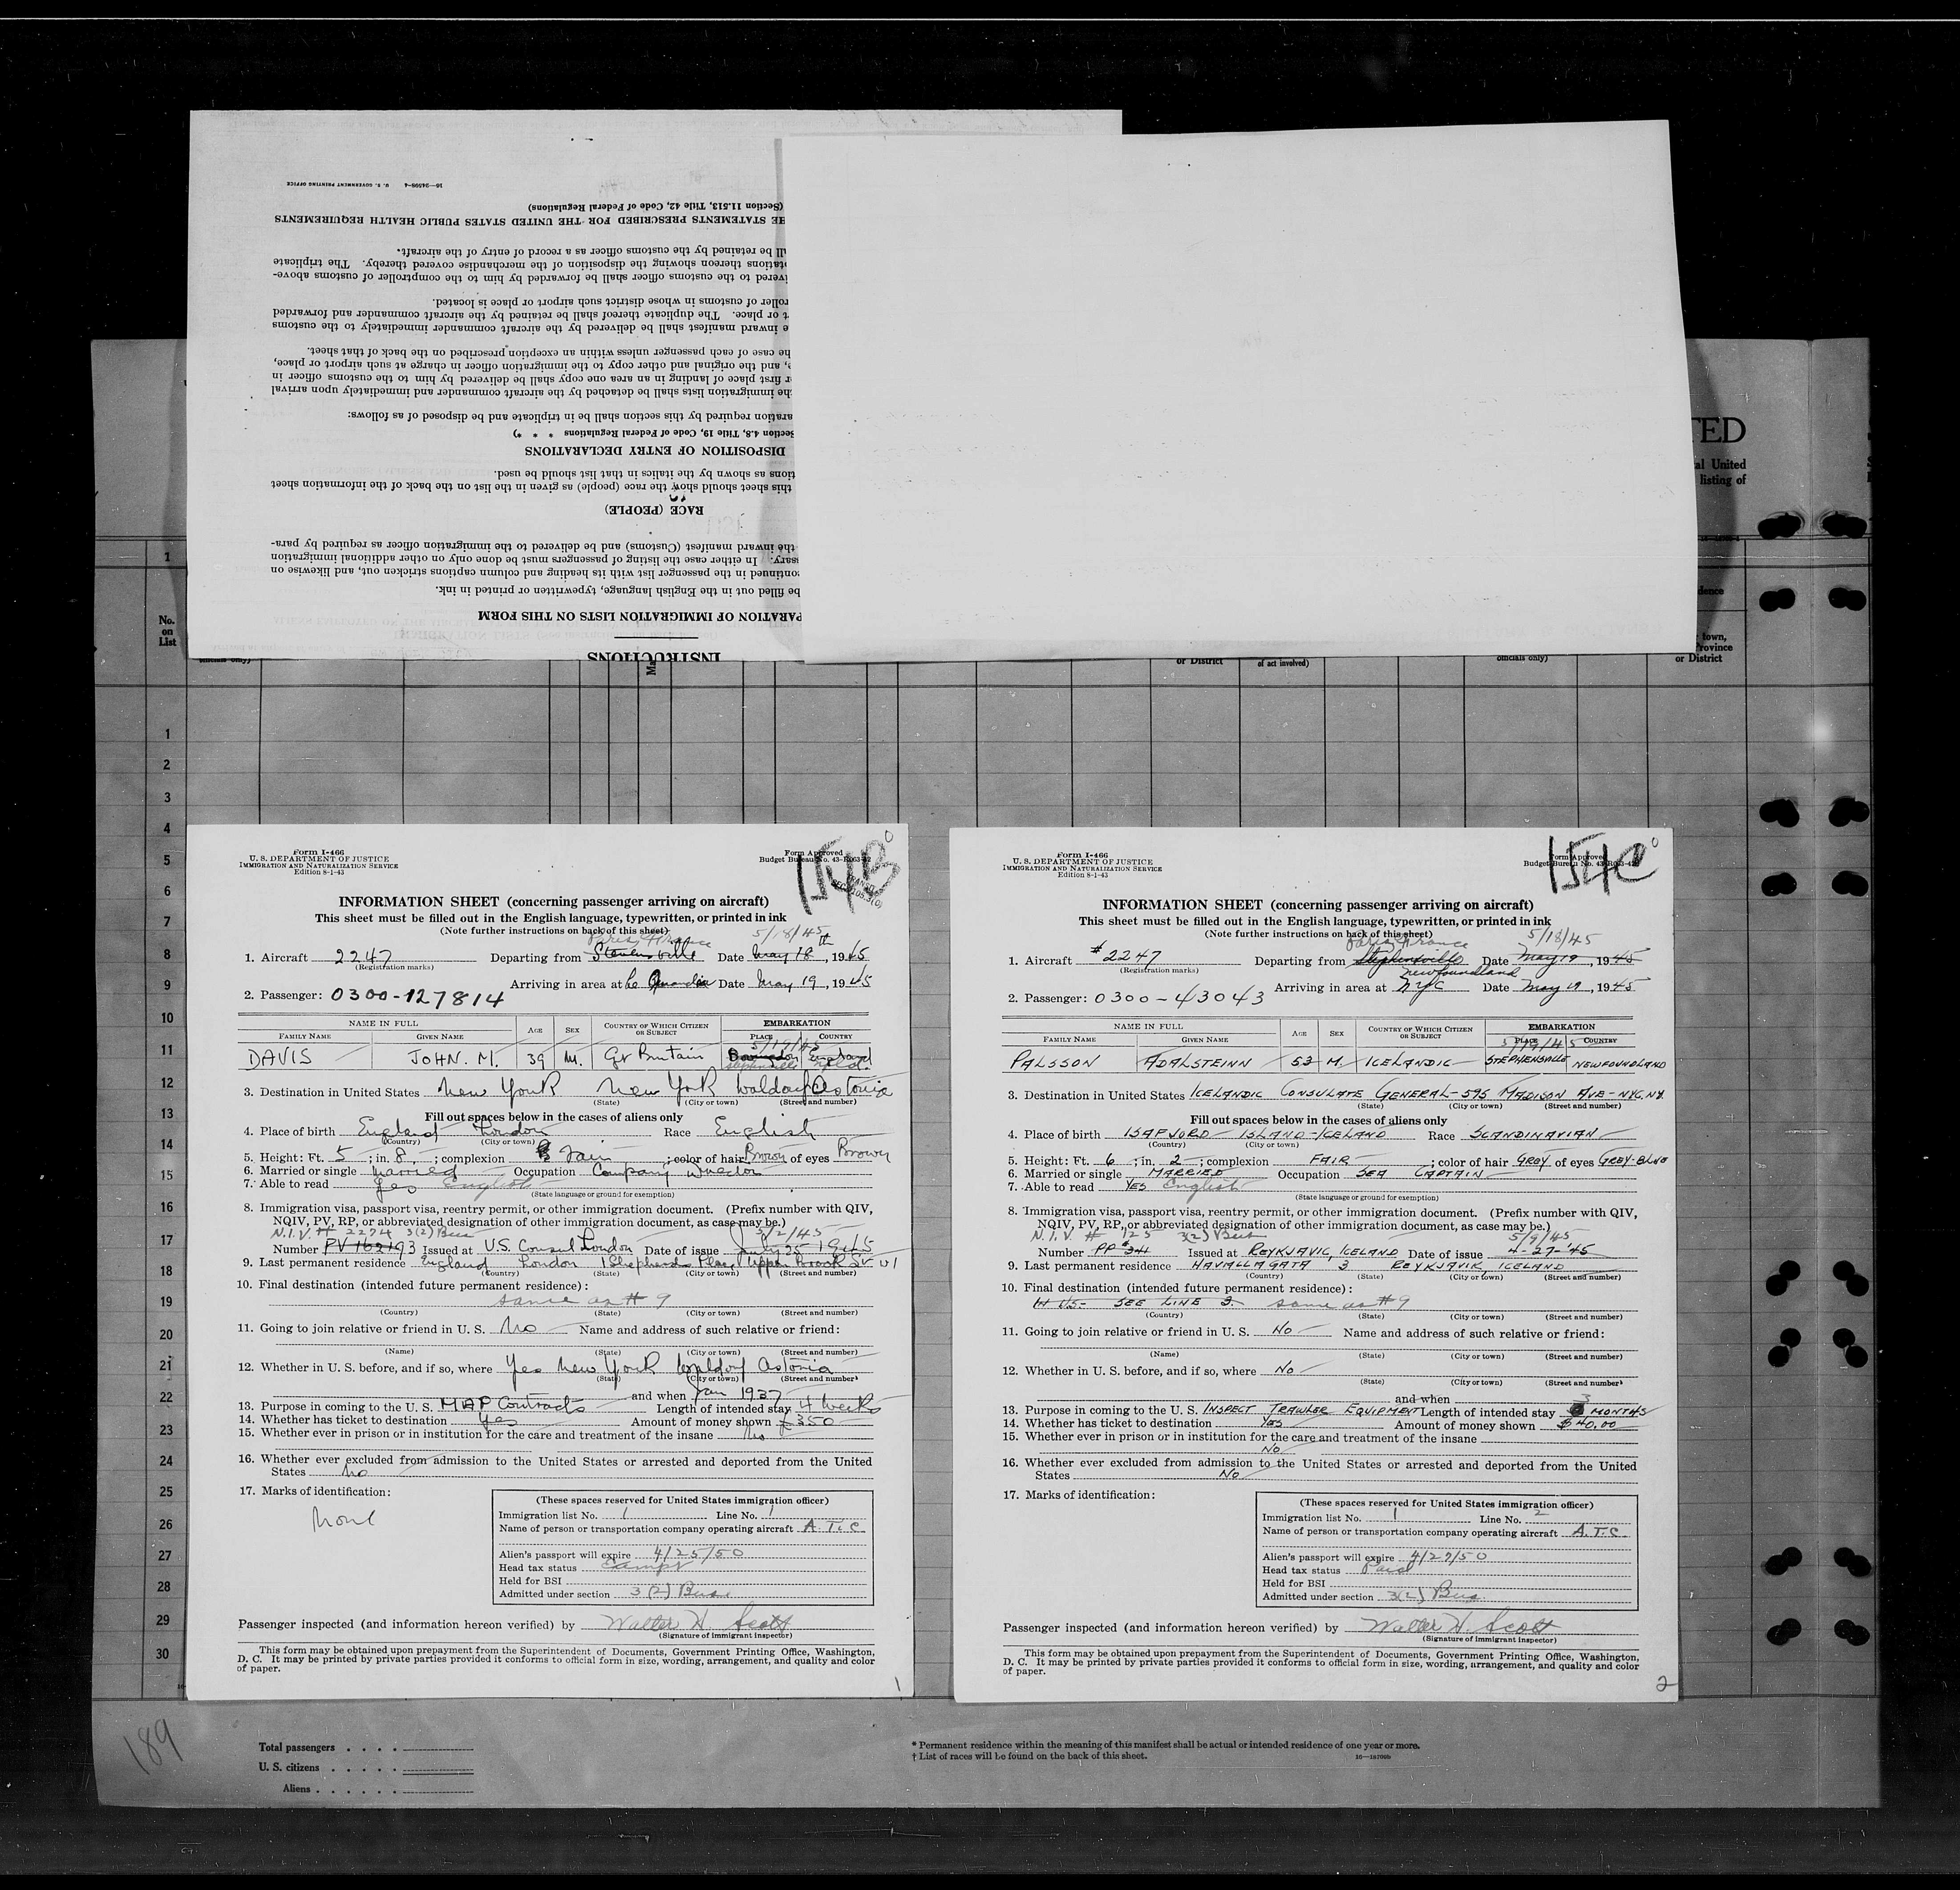 INSTRUCTIONS
PARATION OF IMMIGRATION LISTS ON THIS FORM
be filled out in the English language, typewritten or printed in ink.
continued in the passenger list with its heading and column captions stricken out, and likewise on
ssary. In either case the listing of passengers must be done only on other additional immigration
the inward manifest (Customs) and be delivered to the immigration officer as required by para-
RACE (PEOPLE)
this sheet should show the race (people) as given in the list on the back of the information sheet
tions as shown by the italics in that list should be used.
DISPOSITION OF ENTRY DECLARATIONS
Section 4.8, Title 19, Code of Federal Regulations * * *)
aration required by this section shall be in triplicate and be disposed of as follows:
the immigration lists shall be detached by the aircraft commander and immediately upon arrival
r first place of landing in an area one copy shall be delivered by him to the customs officer in
e, and the original and other copy to the immigration officer in charge at such airport or place,
he case of each passenger unless within an exception prescribed on the back of that sheet.
e inward manifest shall be delivered by the aircraft commander immediately to the customs
t or place. The duplicate thereof shall be retained by the aircraft commander and forwarded
roller of customs in whose district such airport or place is located.
ivered to the customs officer shall be forwarded by him to the comptroller of customs above-
tations thereon showing the disposition of the merchandise covered thereby. The triplicate
ll be retained by the customs officer as a record of entry of the aircraft.
HE STATEMENTS PRESCRIBED FOR THE UNITED STATES PUBLIC HEALTH REQUIREMENTS
(Section 11.513, Title 42, Code of Federal Regulations)
16—24598-4 U. S. GOVERNMENT PRINTING OFFICE
TED
al United
listing of
1
No.
on
List
officials only)
Ma
or District
of act involved)
officials only)
dence
town,
Province
or District
1
2
3
4
5
6
7
8
9
10
11
12
13
14
15
16
17
18
19
20
21
22
23
24
25
26
27
28
29
30
154B
Form I-466
U. S. DEPARTMENT OF JUSTICE
IMMIGRATION AND NATURALIZATION SERVICE
Edition 8-1-43
Form Approved
Budget Bureau No. 43-R063-42
INFORMATION SHEET (concerning passenger arriving on aircraft)
This sheet must be filled out in the English language, typewritten, or printed in ink
(Note further instructions on back of this sheet)
Paris, France 5/18/45
1. Aircraft 2247 Departing from Stevensville Date May 18th, 1945
(Registration marks)
Arriving in area at La Guardia Date May 19, 1945
2. Passenger: 0300-127814
NAME IN FULL AGE SEX COUNTRY OF WHICH CITIZEN OR SUBJECT EMBARKATION
FAMILY NAME GIVEN NAME PLACE COUNTRY
5/19/45
DAVIS JOHN. M. 39 M. Gt Britain Bovingdon England
Stephenville Nfld.
3. Destination in United States New York New York Waldorf Astoria
(State) (City or town) (Street and number)
Fill out spaces below in the cases of aliens only
4. Place of birth England London Race English
(Country) (City or town)
5. Height: Ft. 5; in. 8; complexion Fair; color of hair Brown of eyes Brown
6. Married or single married Occupation Company Director
7. Able to read Yes English
(State language or ground for exemption)
8. Immigration visa, passport visa, reentry permit, or other immigration document. (Prefix number with QIV,
NQIV, PV, RP, or abbreviated designation of other immigration document, as case may be.)
N.I.V. # 2274 3(2) Bus 5/2/45
Number PV 162193 Issued at U.S. Consul London Date of issue July 25 1945
9. Last permanent residence England London 1 Shepherds Place Upper Brook St W1
(Country) (State) (City or town) (Street and number)
10. Final destination (intended future permanent residence):
same as # 9
(Country) (State) (City or town) (Street and number)
11. Going to join relative or friend in U. S. No Name and address of such relative or friend:
(Name) (State) (City or town) (Street and number)
12. Whether in U. S. before, and if so, where Yes New York Waldorf Astoria
(State) (City or town) (Street and number)
and when Jan 1937
13. Purpose in coming to the U. S. MAP Contracts Length of intended stay 4 weeks
14. Whether has ticket to destination Yes Amount of money shown £350
15. Whether ever in prison or in institution for the care and treatment of the insane No
16. Whether ever excluded from admission to the United States or arrested and deported from the United
States No
17. Marks of identification:
None
(These spaces reserved for United States immigration officer)
Immigration list No. 1 Line No. 1
Name of person or transportation company operating aircraft A.T.C.
Alien's passport will expire 4/25/50
Head tax status Exempt
Held for BSI
Admitted under section 3(2) Bus
Passenger inspected (and information hereon verified) by Walter H. Scott
(Signature of immigrant inspector)
This form may be obtained upon prepayment from the Superintendent of Documents, Government Printing Office, Washington,
D. C. It may be printed by private parties provided it conforms to official form in size, wording, arrangement, and quality and color
of paper.
1
154C
Form I-466
U. S. DEPARTMENT OF JUSTICE
IMMIGRATION AND NATURALIZATION SERVICE
Edition 8-1-43
Form Approved
Budget Bureau No. 43-R063-42
INFORMATION SHEET (concerning passenger arriving on aircraft)
This sheet must be filled out in the English language, typewritten, or printed in ink
(Note further instructions on back of this sheet)
Paris France 5/18/45
1. Aircraft #2247 Departing from Stephensville Date May 19, 1945
(Registration marks) Newfoundland
Arriving in area at NYC Date May 19, 1945
2. Passenger: 0300-43043
NAME IN FULL AGE SEX COUNTRY OF WHICH CITIZEN OR SUBJECT EMBARKATION
FAMILY NAME GIVEN NAME PLACE COUNTRY
5/19/45
PALSSON ADALSTEINN 53 M. ICELANDIC STEPHENSVILLE NEWFOUNDLAND
3. Destination in United States ICELANDIC CONSULATE GENERAL-595 MADISON AVE-NYC, NY.
(State) (City or town) (Street and number)
Fill out spaces below in the cases of aliens only
4. Place of birth ISAFJORD ISLAND-ICELAND Race SCANDINAVIAN
(Country) (City or town)
5. Height: Ft. 6; in. 2; complexion FAIR; color of hair GREY of eyes GREY-BLUE
6. Married or single MARRIED Occupation SEA CAPTAIN
7. Able to read YES English
(State language or ground for exemption)
8. Immigration visa, passport visa, reentry permit, or other immigration document. (Prefix number with QIV,
NQIV, PV, RP, or abbreviated designation of other immigration document, as case may be.)
N.I.V. # 125 3(2) Bus 5/9/45
Number PP #34 Issued at REYKJAVIC, ICELAND Date of issue 4-27-'45
9. Last permanent residence HAVALLAGATA 3 REYKJAVIK, ICELAND
(Country) (State) (City or town) (Street and number)
10. Final destination (intended future permanent residence):
IN US- SEE LINE 3. same as #9
(Country) (State) (City or town) (Street and number)
11. Going to join relative or friend in U. S. No Name and address of such relative or friend:
(Name) (State) (City or town) (Street and number)
12. Whether in U. S. before, and if so, where No
(State) (City or town) (Street and number)
and when
13. Purpose in coming to the U. S. INSPECT TRAWLER EQUIPMENT Length of intended stay 3 MONTHS
14. Whether has ticket to destination YES Amount of money shown $40.00
15. Whether ever in prison or in institution for the care and treatment of the insane
No
16. Whether ever excluded from admission to the United States or arrested and deported from the United
States No
17. Marks of identification:
(These spaces reserved for United States immigration officer)
Immigration list No. 1 Line No. 2
Name of person or transportation company operating aircraft A.T.C.
Alien's passport will expire 4/27/50
Head tax status Paid
Held for BSI
Admitted under section 3(2) Bus.
Passenger inspected (and information hereon verified) by Walter H. Scott
(Signature of immigrant inspector)
This form may be obtained upon prepayment from the Superintendent of Documents, Government Printing Office, Washington,
D. C. It may be printed by private parties provided it conforms to official form in size, wording, arrangement, and quality and color
of paper.
2
189
Total passengers . . . .
U. S. citizens . . . . .
Aliens . . . . . .
* Permanent residence within the meaning of this manifest shall be actual or intended residence of one year or more.
† List of races will be found on the back of this sheet.